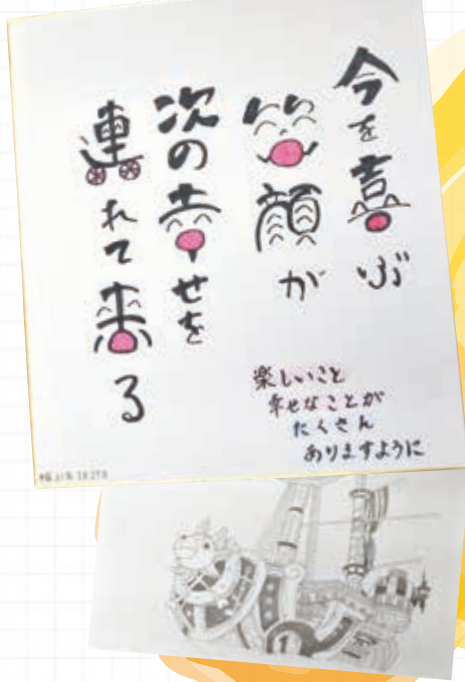 今を喜ぶ
笑顔が
次の幸せを
連れて来る
楽しいこと
幸せなことが
たくさん
ありますように
1